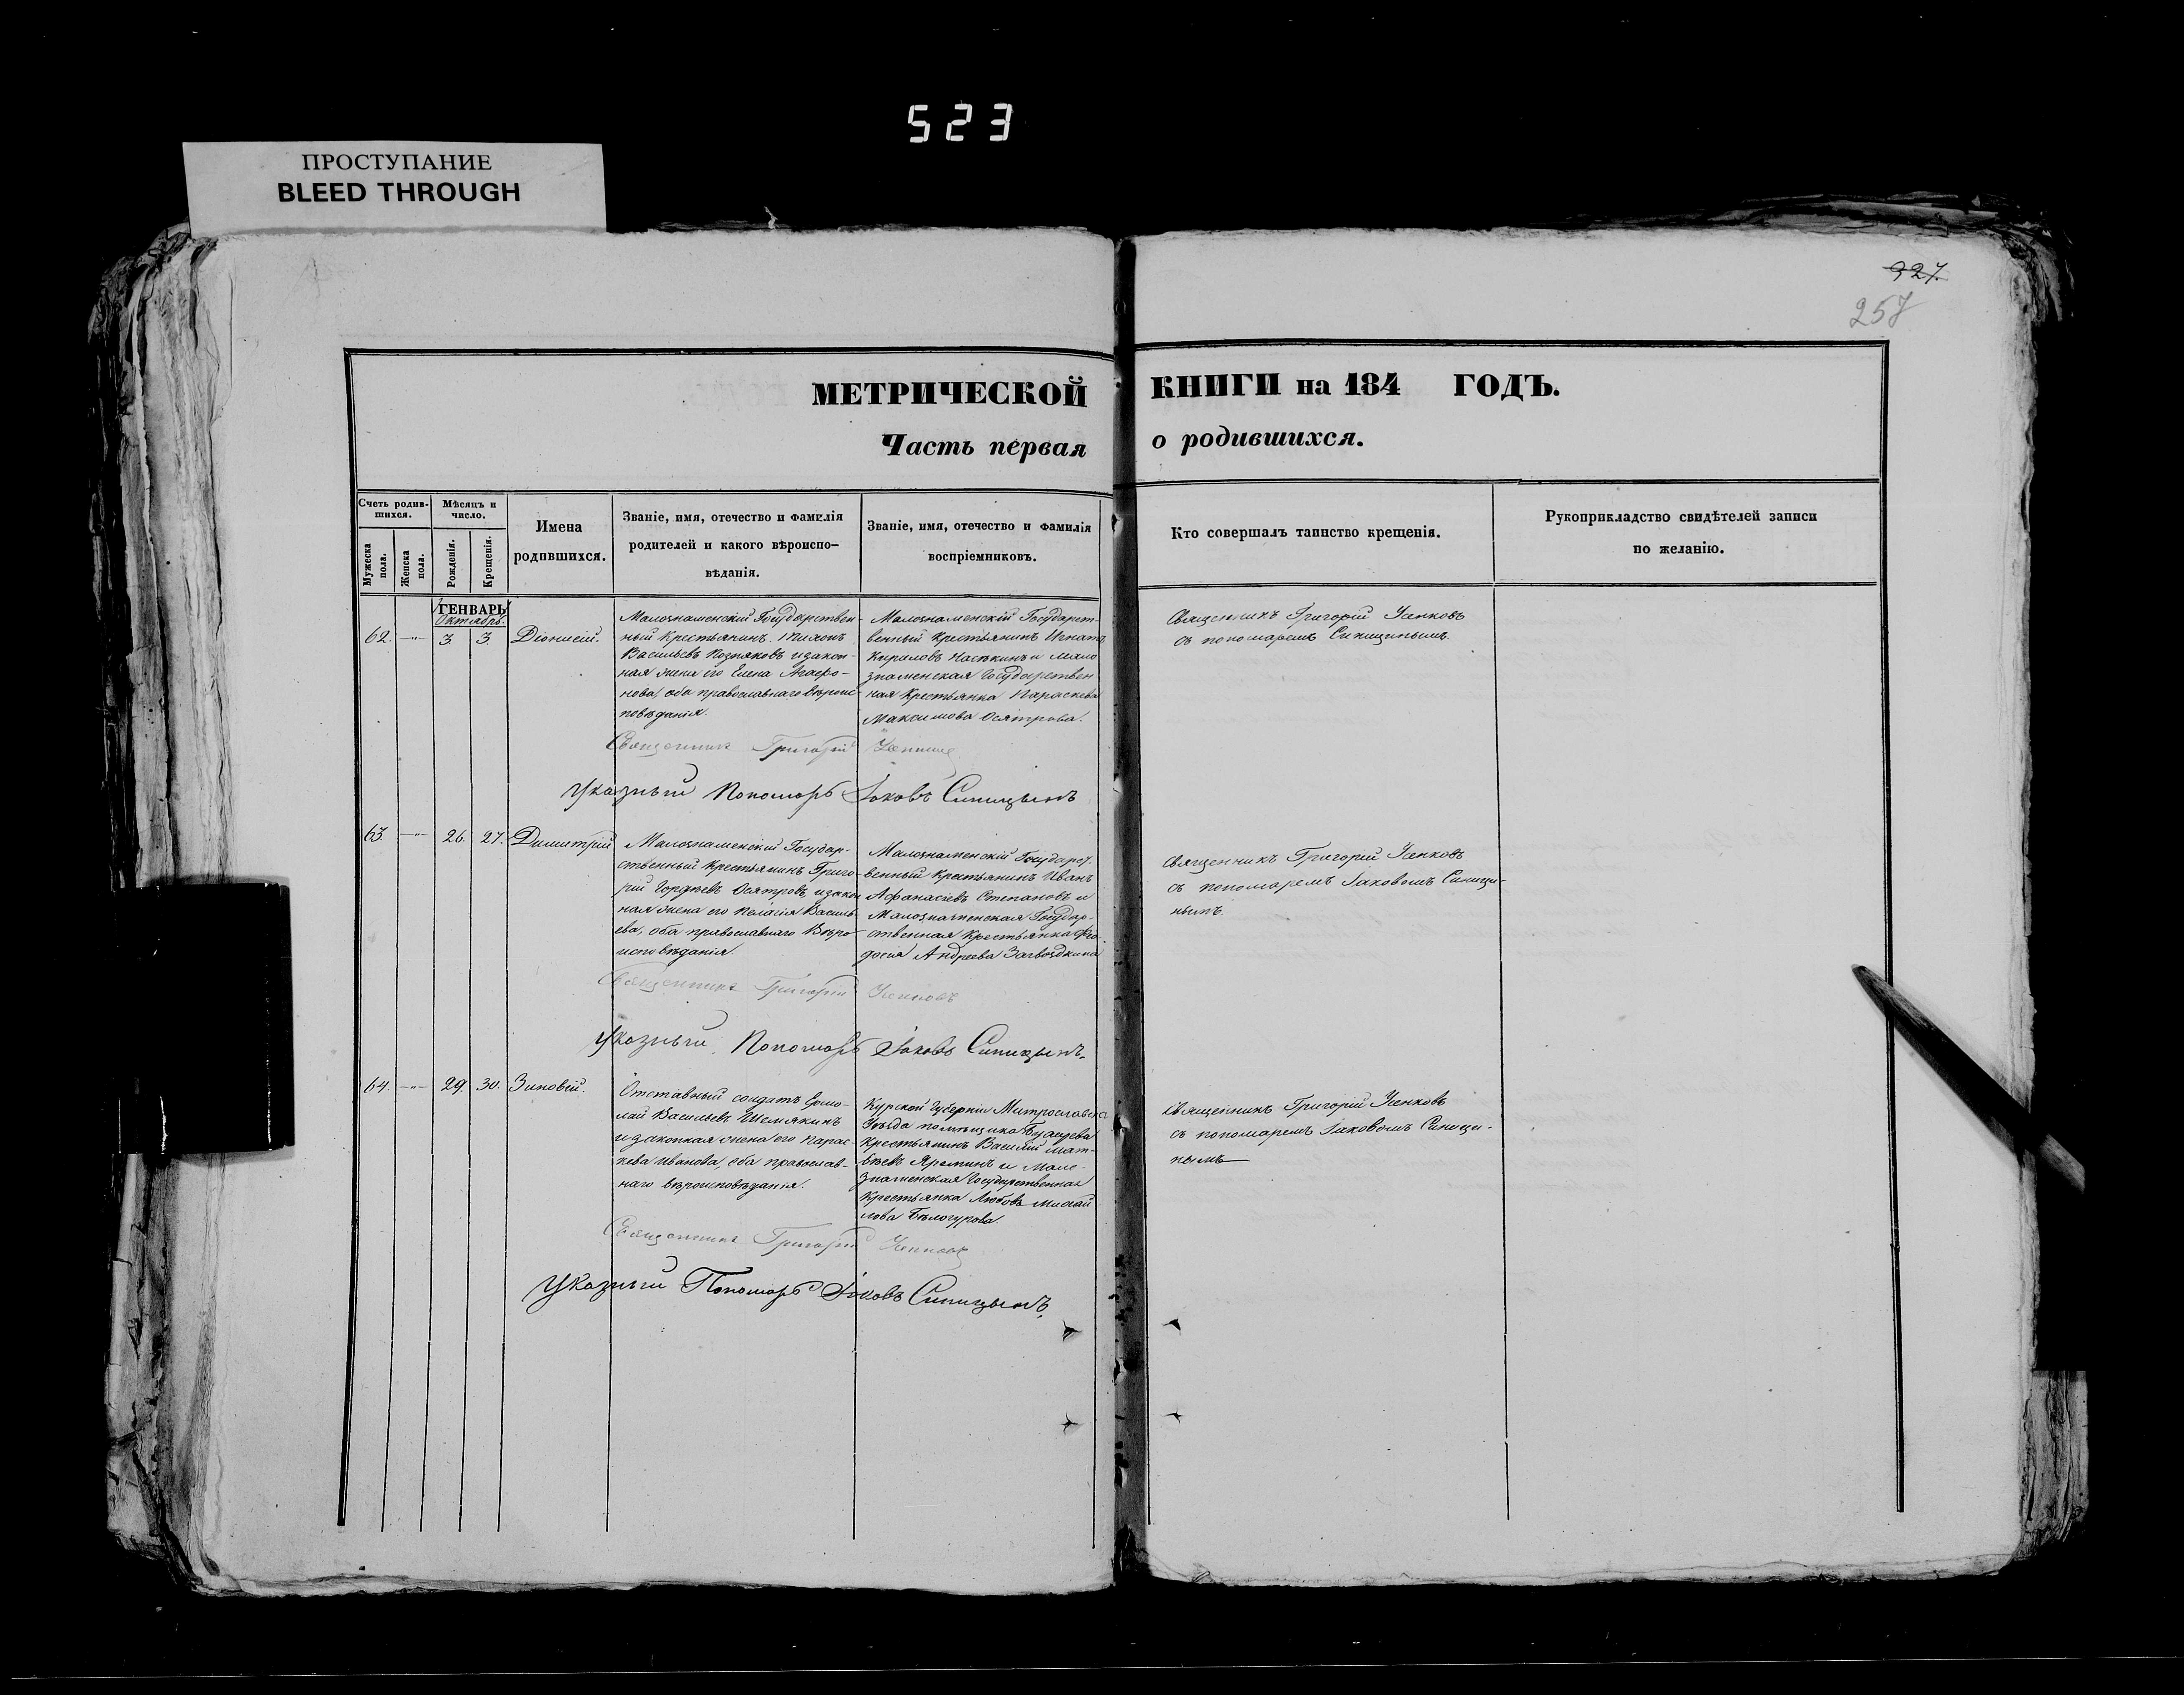 523
ПРОСТУПАНИЕ
BLEED THROUGH
327.
257
МЕТРИЧЕСКОЙ КНИГИ на 184 ГОДЪ.
Часть первая о родившихся.
Счетъ родив-
шихся.
Мужеска пола.
Женска пола.
Мѣсяцъ и
число.
Рожденія.
Крещенія.
Имена
родившихся.
Званіе, имя, отечество и фамилія
родителей и какого вѣроиспо-
вѣданія.
Званіе, имя, отечество и фамилія
воспріемниковъ.
Кто совершалъ таинство крещенія.
Рукоприкладство свидѣтелей записи
по желанію.
ГЕНВАРЬ
Октябрь.
62. —"— 3 3. Діонисій.
Малознаменскій Государствен-
ный Крестьянинъ
Васильевъ Позняковъ и закон-
ная жена его Елена Агафо-
нова, оба православнаго вѣроис-
повѣданія.
Малознаменскій Государст-
венный Крестьянинъ Игнатъ
Кириловъ и Мало
знаменская Государствен
ная Крестьянка Параскева
Максимова Осятрова.
Священникъ Григорій Усенковъ
съ пономаремъ Синицинымъ.
Священникъ Григорій Усенковъ
Указный Пономарь Іаковъ Синицынъ
63. —"— 26. 27. Димитрій
Малознаменскій Государ-
ственный Крестьянинъ Григо-
рій Гордѣевъ Осятровъ, и закон
ная жена его Пелагія Василь-
ева, оба православнаго Вѣро-
исповѣданія.
Малознаменскій Государст.
венный Крестьянинъ Иванъ
Афанасіевъ Степановъ и
Малознаменская Государ-
ственная Крестьянка Фео-
досія Андреева Загвоздкина
Священникъ Григорій Усенковъ
съ пономаремъ Іаковомъ Синици-
нымъ.
Священникъ Григорій Усенковъ
Указный Пономарь Іаковъ Синицынъ.
64. —"— 29. 30. Зиновій.
Отставный солдатъ Ермо-
лай Васильевъ Шемякинъ
и законная жена его Парас-
кева Иванова, оба православ-
наго вѣроисповѣданія.
Курской Губерніи
Уѣзда помѣщика
Крестьянинъ Василій Мат-
вѣевъ и Мало-
знаменская Государственная
Крестьянка Любовь Михай
лова Бѣлогурова.
Священникъ Григорій Усенковъ
съ пономаремъ Іаковомъ Синици-
нымъ
Священникъ Григорій Усенковъ
Указный Пономарь Іаковъ Синицынъ.